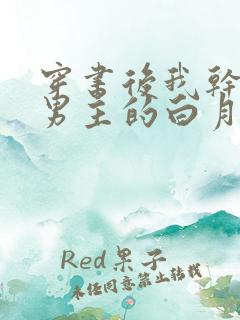 穿書後我幹
男主的白月
Red果子
未经同意禁止转载